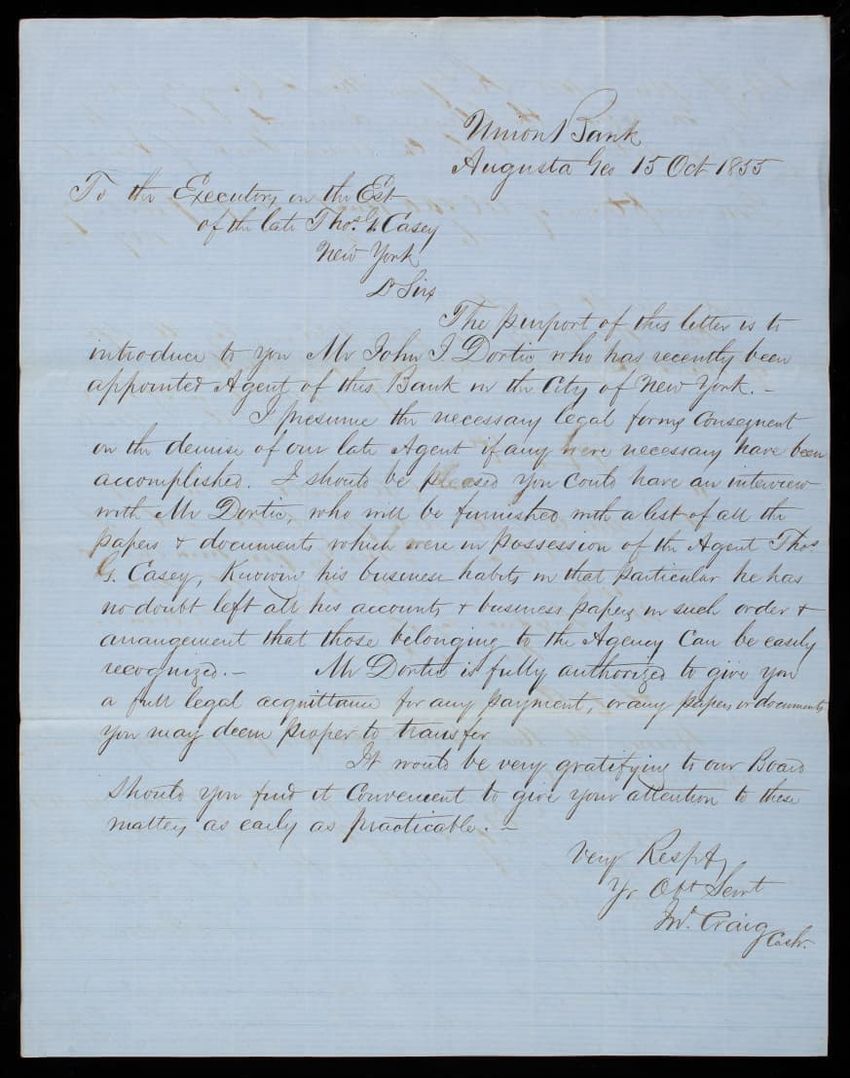 Union Bank
Augusta Geo 15 Oct 1855
To the Executors on the Est
of the late Thos. G. Casey
New York
D Sirs
The purport of this letter is to
introduce to you Mr John I Dortic who has recently been
appointed Agent of this Bank in the City of New York. -
I presume the necessary legal forms consequent
on the demise of our late Agent if any were necessary have been
accomplished. I should be pleased you could have an interview
with Mr Dortic, who will be furnished with a list of all the
papers & documents which were in possession of the Agent Thos
G. Casey, Knowing his business habits in that particular he has
no doubt left all his accounts & business papers in such order &
arrangement that those belonging to the Agency Can be easily
recognized. - Mr Dortic is fully authorized to give you
a full legal acquittance for any payment, or any papers or documents
you may deem proper to transfer
It would be very gratifying to our Board
should you find it Convenient to give your attention to these
matters as early as practicable. -
Very Respty
Yr Obt Servt
Craig Cashr.